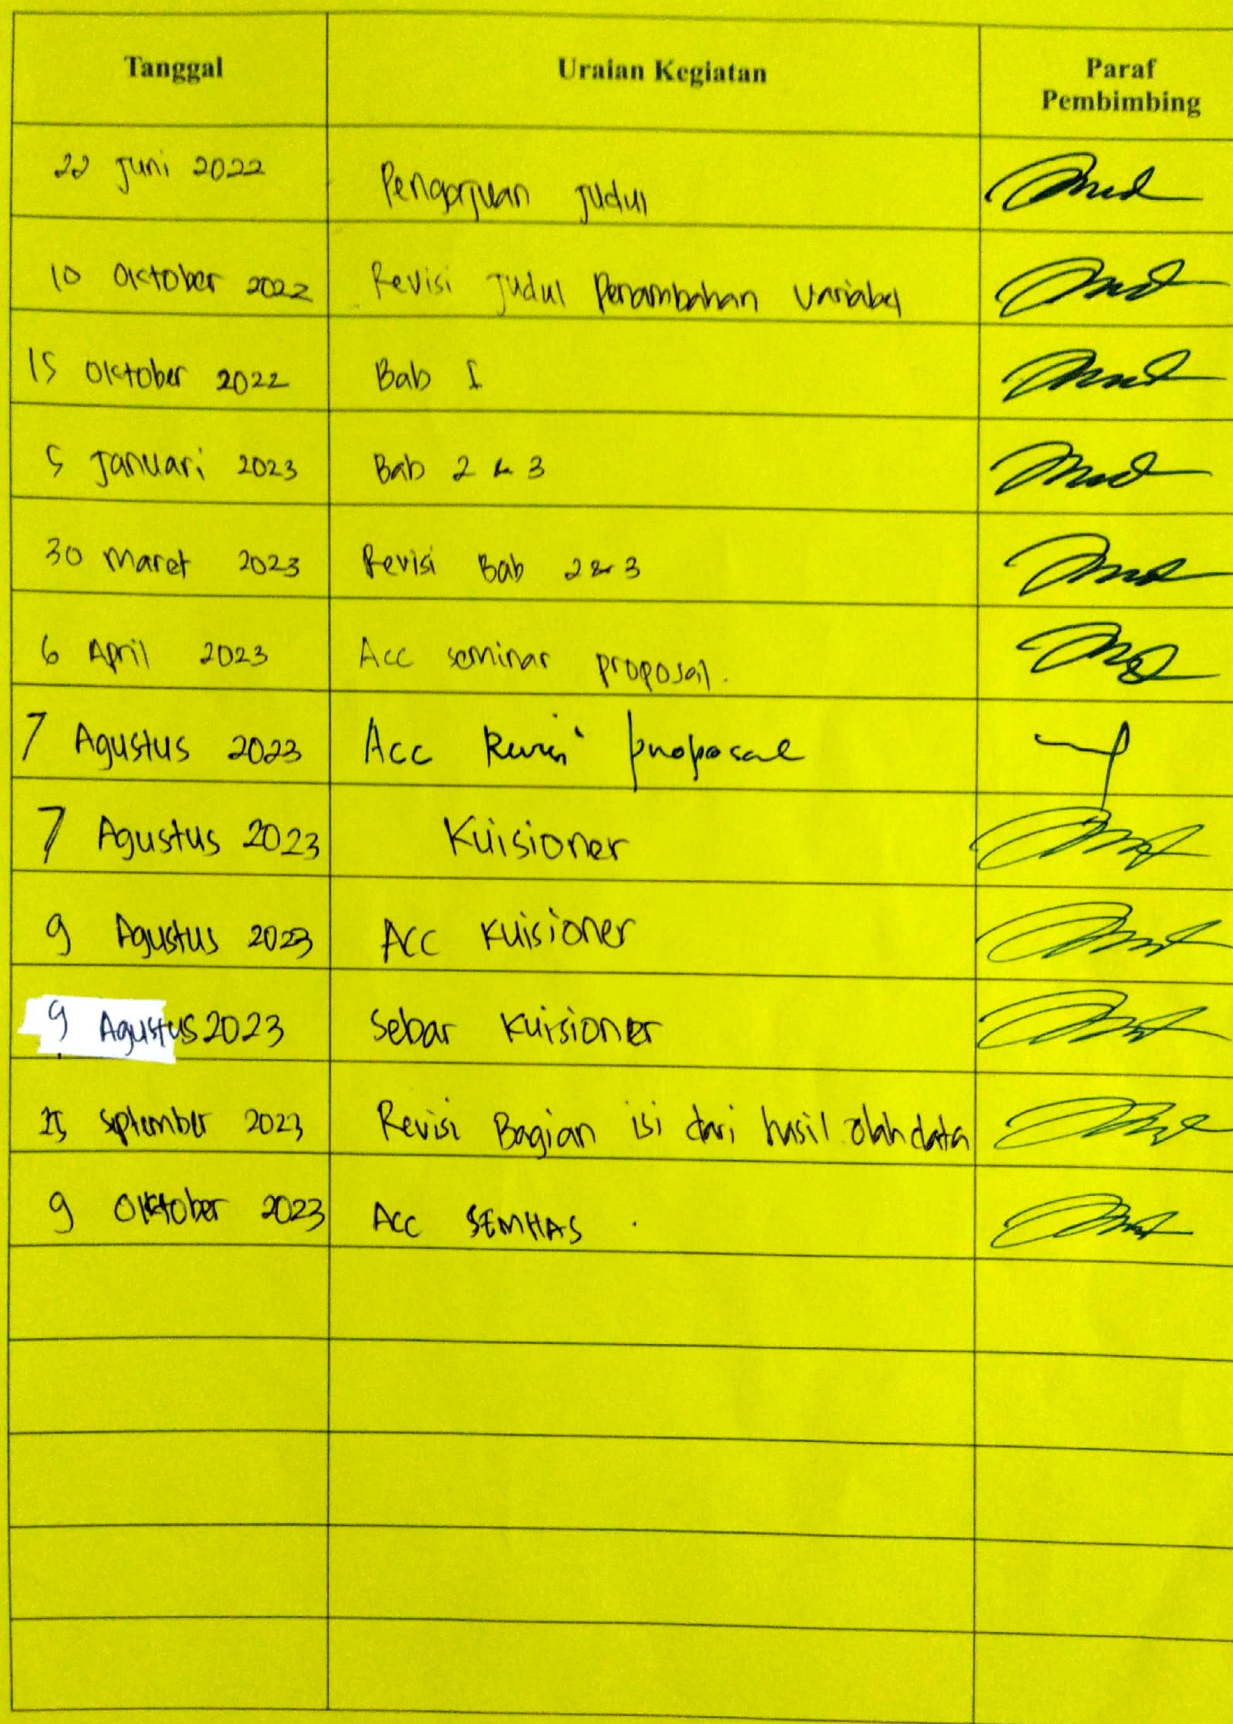 Tanggal Uraian Kegiatan Paraf
Pembimbing
22 Juni 2022 Pengajuan Judul
10 Oktober 2022 Revisi Judul Penambahan Variabel
15 Oktober 2022 Bab I
5 Januari 2023 Bab 2 & 3
30 Maret 2023 Revisi Bab 2 & 3
6 April 2023 Acc seminar proposal.
7 Agustus 2023 Acc Revisi proposal
7 Agustus 2023 Kuisioner
9 Agustus 2023 Acc Kuisioner
9 Agustus 2023 Sebar Kuisioner
25 September 2023 Revisi Bagian isi dari hasil olah data
9 Oktober 2023 Acc SEMHAS.